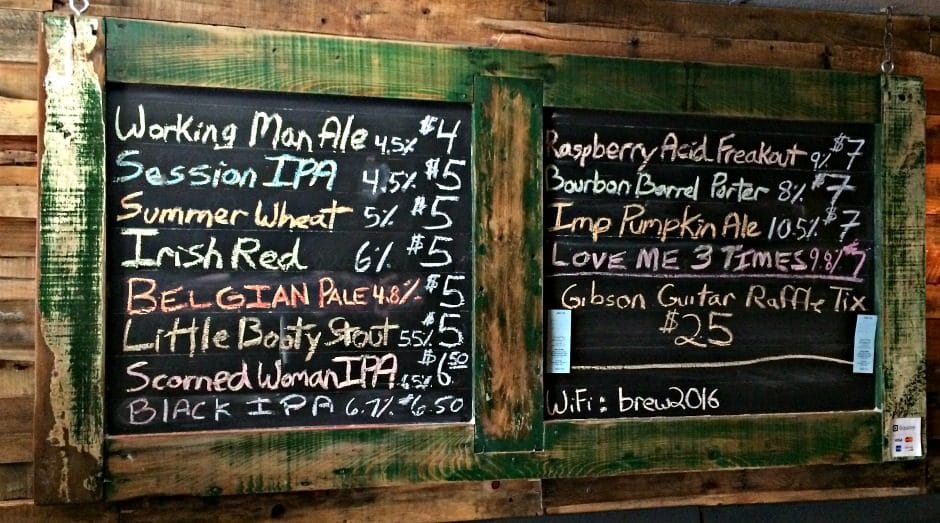 Working Man Ale 4.5% $4
Session IPA 4.5% $5
Summer Wheat 5% $5
Irish Red 6% $5
BELGIAN PALE 4.8% $5
Little Booty Stout 5.5% $5
Scorned Woman IPA 6.5% $6.50
BLACK IPA 6.7% $6.50
Raspberry Acid Freakout 9% $7
Bourbon Barrel Porter 8% $7
Imp Pumpkin Ale 10.5% $7
LOVE ME 3 TIMES 9.8% $7
Gibson Guitar Raffle Tix
$25
WiFi: brew2016